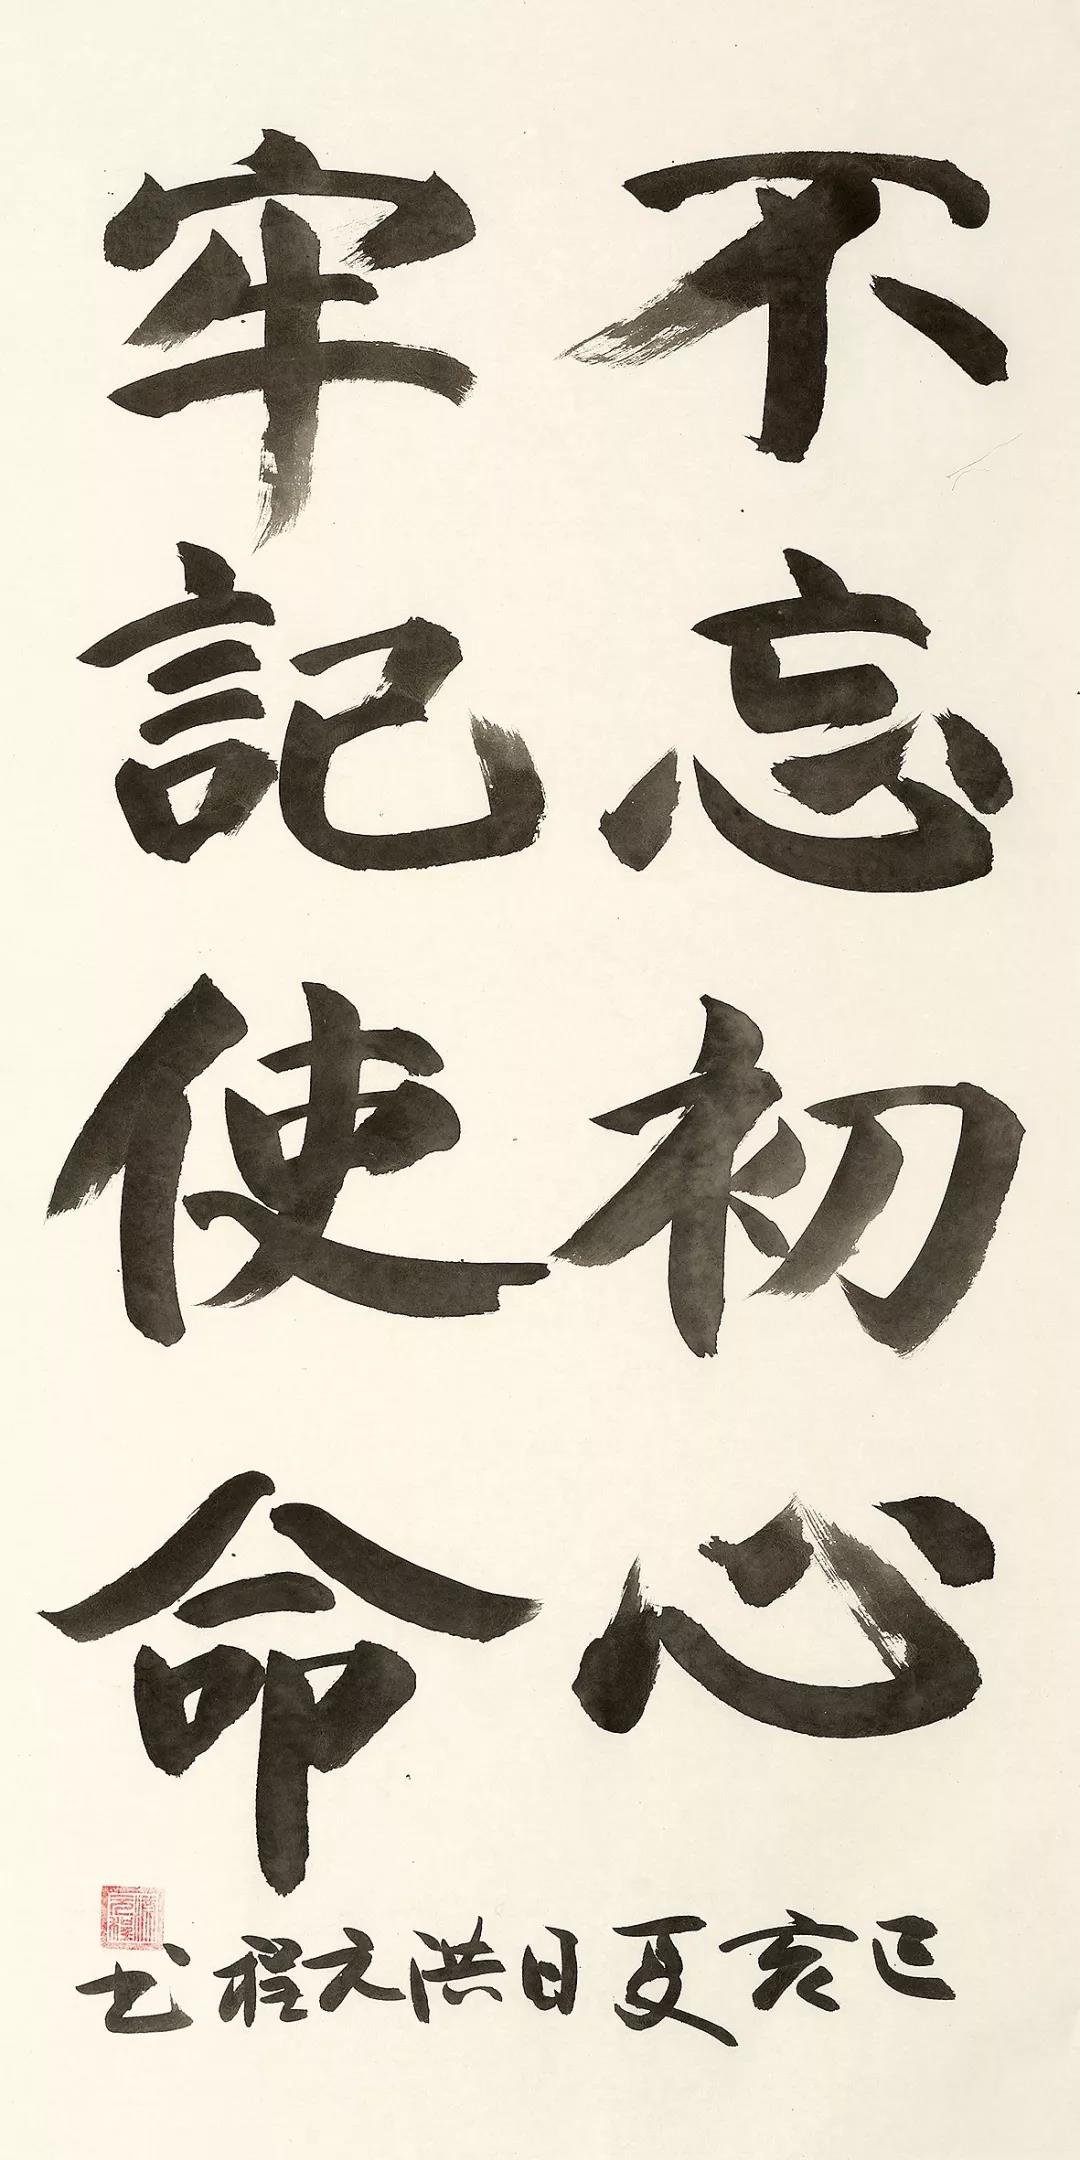 不忘初心
牢記使命
己亥夏日洪元程书